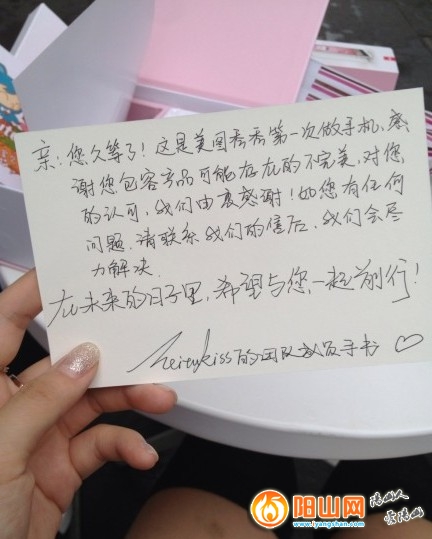 亲:您久等了!这是美图秀秀第一次做手机,感
谢您包容产品可能存在的不完美,对您
的认可,我们由衷感谢!如您有任何
问题,请联系我们的售后,我们会尽
力解决.
在未来的日子里,希望与您一起前行!
Meitukiss的团队成员手书
阳山网
www.iyangshan.com
阳山人
爱阳山